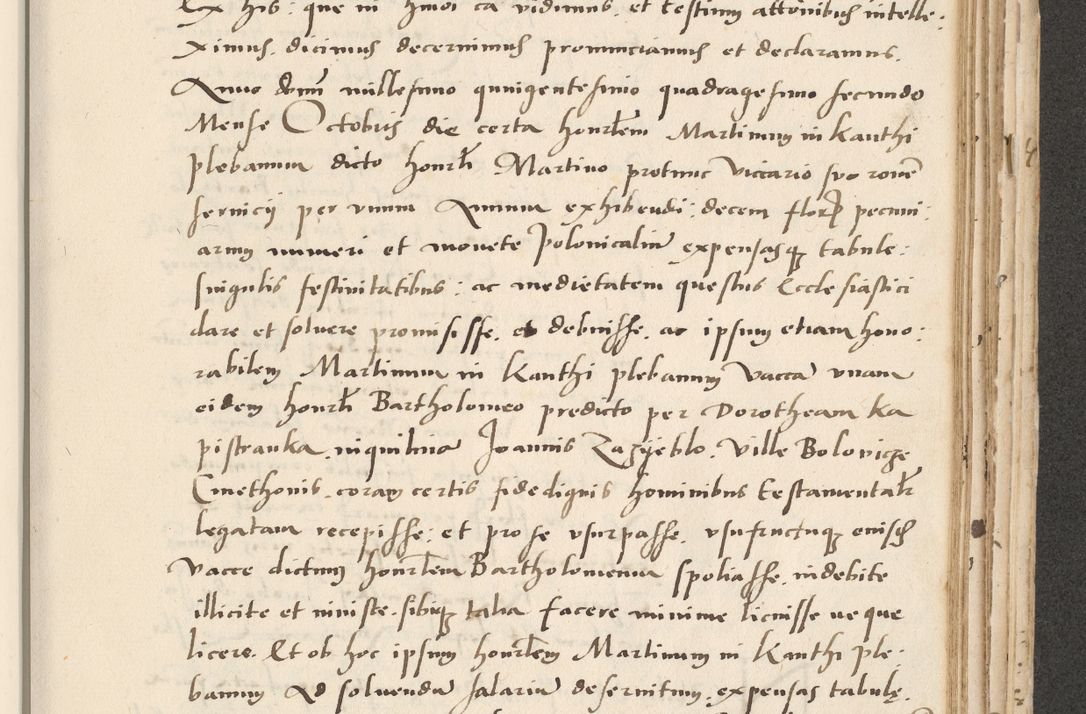 Ex his: que in hmoi ca vidimus. et testium attonibus intelle:
ximus. dicimus decernimus pronunciamus et declaramus.
Anno dnni millesimo quingentesimo quadragesimo secundo
Mense Octobris die certa honrlem Martinum in Kanthi
plebanum dicto honrli Martino protunc viccario suo
servicij per unum Annum exhibendi: decem flor pecuni:
arum numeri et monete Polonicaliu expensasq tabule:
singulis festivitatibus: ac medietatem questus Ecclesiastici
dare et solvere promisisse. et debuisse. ac ipsum etiam hono:
rabilem Martinum in Kanthi plebanum vacca unam
eidem honrli Bartholomeo predicto per Dorotheam Ka
pistranka inquilina Joannis Zagyeblo. Ville Bolovice
Cmethonis. coram certis fidedignis hominibus testamentalr
legatam recepisse: et pro se usurpasse. usufructuq euisd
vacce dictum honrlem Bartholomeum spoliasse. indebite
illicite et iniuste. sibiq talia facere minime licuisse neque
licere. Et ob hoc ipsum honrlem Martinum in Kanthi ple:
banum Ad solvendu salariu deservitum. expensas tabule.